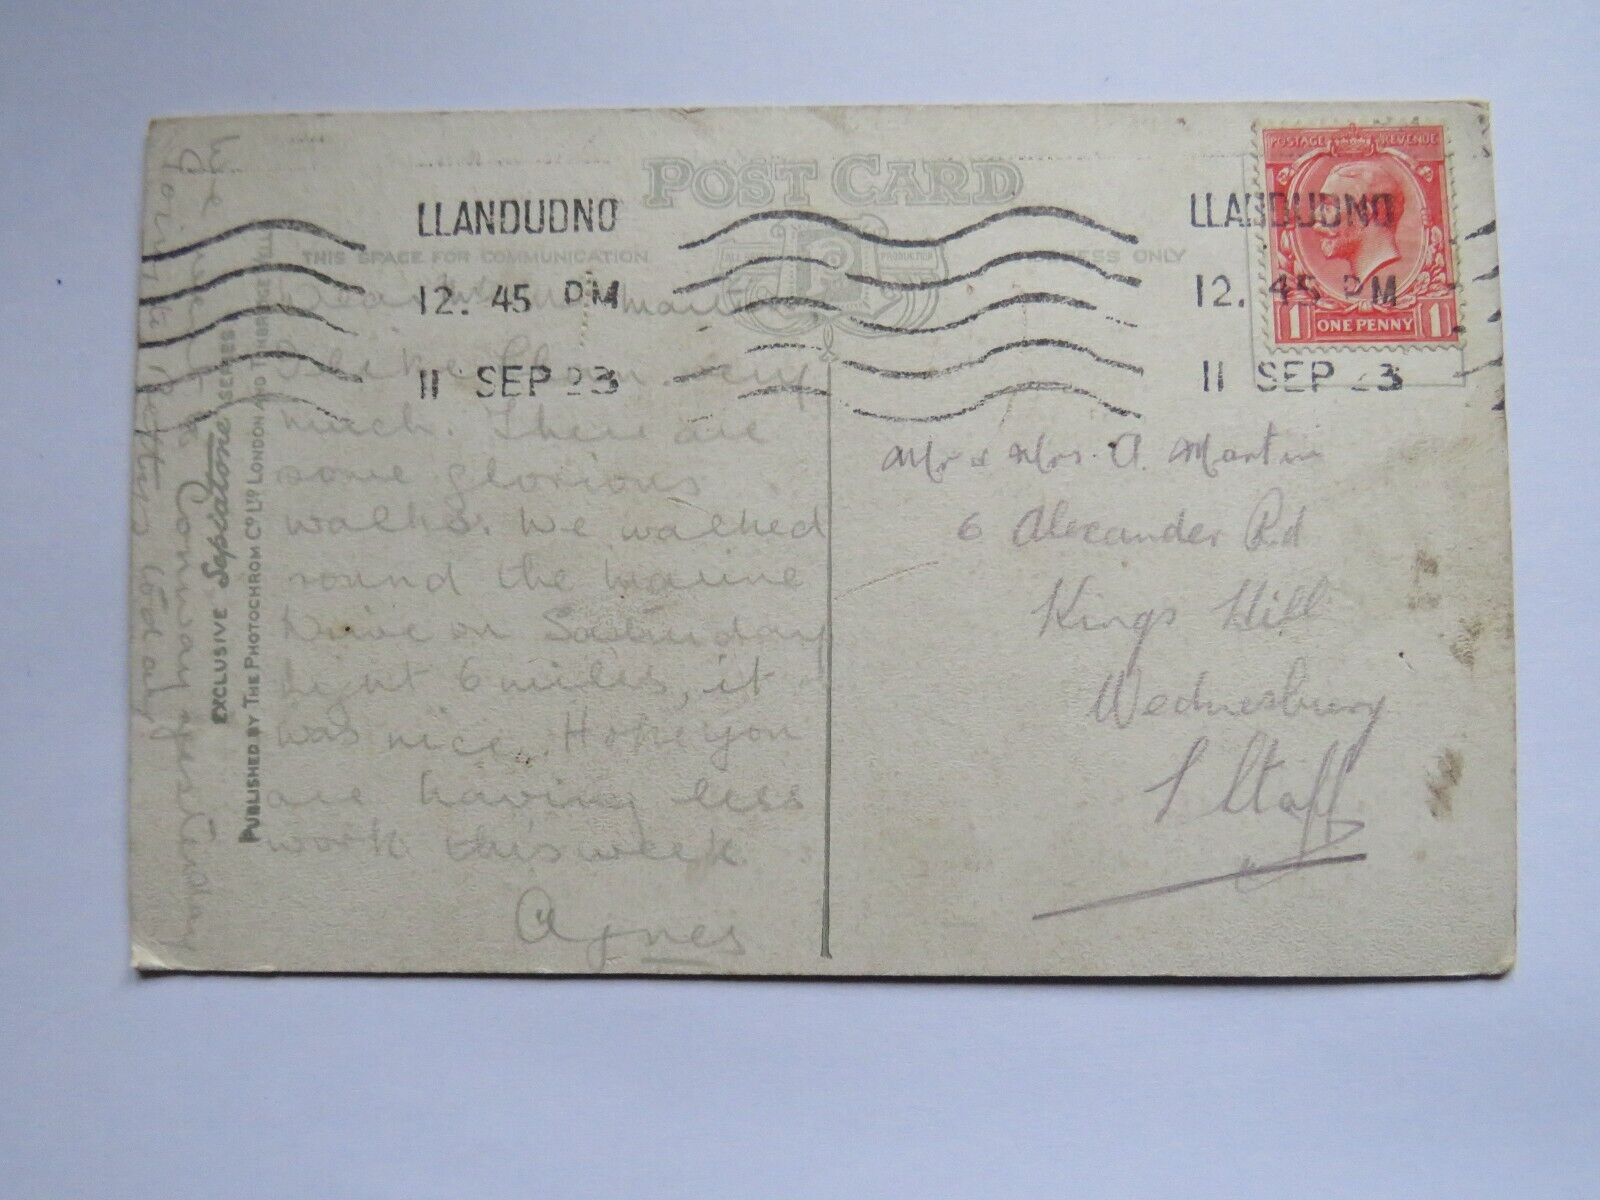 POST CARD
THIS SPACE FOR COMMUNICATION
ADDRESS ONLY
LLANDUDNO
12. 45 PM
11 SEP 23
LLANDUDNO
12. 45 PM
11 SEP 23
POSTAGE REVENUE
1 ONE PENNY 1
Dear Martin,
I like very
much. There are
some glorious
walks. We walked
round the Marine
Drive on Saturday
night 6 miles, it
was nice. Hope you
are having less
work this week
Agnes
We went to Conway yesterday
Going to Bettys today
EXCLUSIVE Sepiatone SERIES
PUBLISHED BY THE PHOTOCHROM CO. LTD. LONDON AND TUNBRIDGE WELLS
Mr & Mrs. A. Martin
6 Alexander Rd
Kings Hill
Wednesbury
S Staff